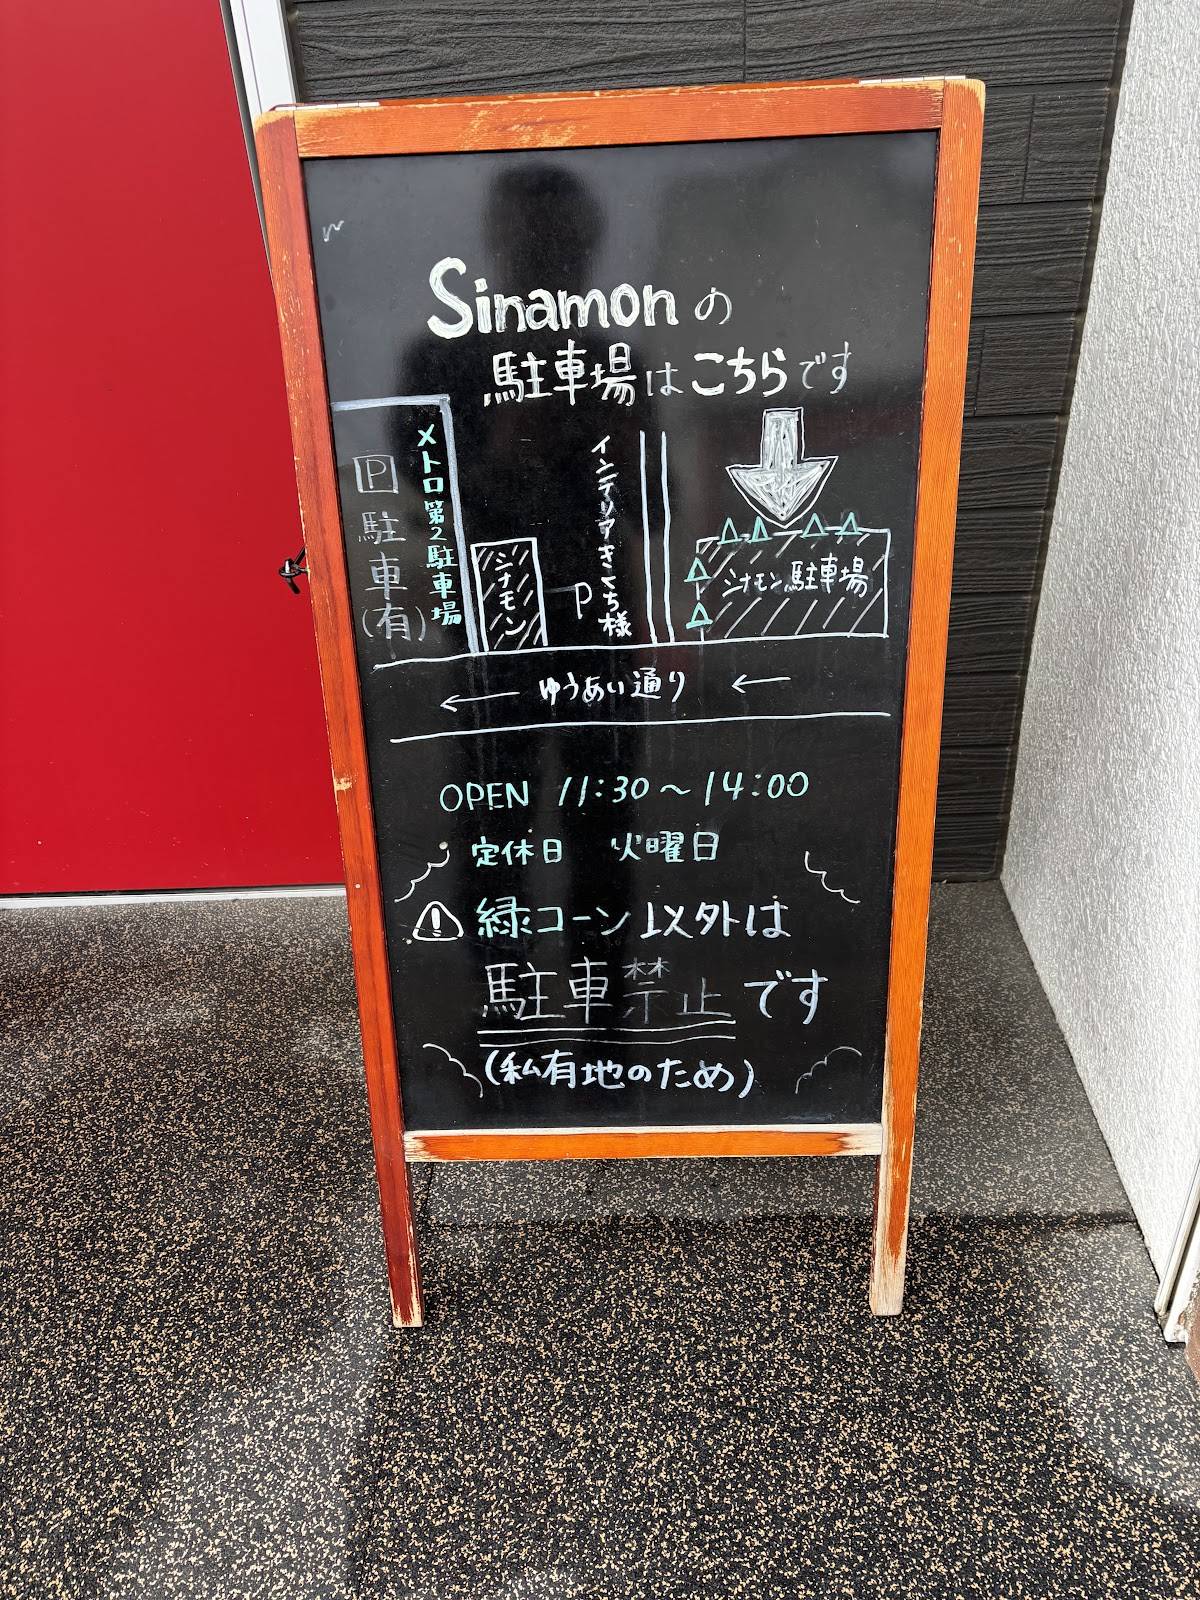 Sinamonの
駐車場はこちらです
メトロ第2駐車場
P
駐車(有)
シナモン
P
インテリアきくち様
シナモン駐車場
← ゆうあい通り ←
OPEN 11:30〜14:00
定休日 火曜日
緑コーン以外は
駐車禁止です
(私有地のため)